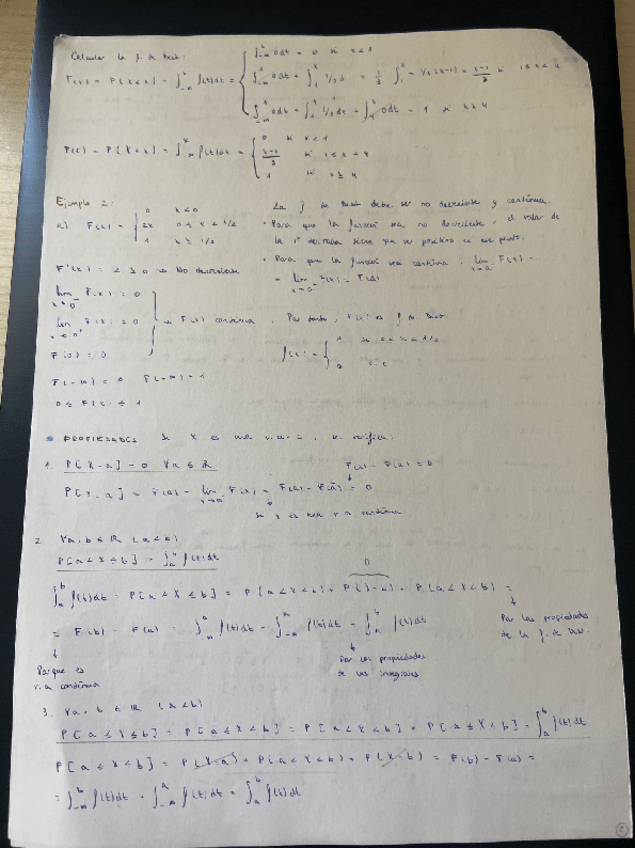 Calcular la f. de distr:
F(x) = P[X ≤ x] = ∫_{-∞}^{x} f(t)dt = { ∫_{-∞}^{x} 0dt = 0 si x<1
∫_{-∞}^{1} 0dt + ∫_{1}^{x} 1/3 dt = 1/3 (x-1) = x-1/3 si 1≤x<4
∫_{-∞}^{1} 0dt + ∫_{1}^{4} 1/3 dt + ∫_{4}^{x} 0dt = 1 si x≥4
F(x) = P[X≤x] = ∫_{-∞}^{x} f(t)dt = { 0 si x<1
x-1/3 si 1≤x<4
1 si x≥4
Ejemplo 2:
a) F(x) = { 0 x<0
2x 0≤x<1/2
1 x≥1/2
La f de distr debe ser no decreciente y continua.
• Para que la función sea no decreciente, el valor de
la 1ª derivada tiene que ser positivo en ese punto.
• Para que la función sea continua, lim F(x) =
= lim F(x) = F(a)
F'(x) = 2 ≥ 0 → No decreciente
lim_{x→0⁻} F(x) = 0
lim_{x→0⁺} F(x) = 0 → F(x) continua. Por tanto, F(x) es f. de distr
F(0) = 0
f(x) = {
F(-∞) = 0
0 ≤ F(x) ≤ 1
* PROPIEDADES Si X es una v.a., se verifica:
1. P[X=a] = 0 ∀a∈ℝ
F(a) - F(a) = 0
P[X=a] = F(a) - lim F(x) = F(a) - F(a) = 0
Si X es una v.a continua
2. ∀a,b∈ℝ (a<b)
P[a<X≤b] = ∫_{a}^{b} f(t)dt
0
∫_{a}^{b} f(t)dt = P[a<X≤b] = P[a<X<b] + P[X=b] = P[a<X<b] =
= F(b) - F(a) = ∫_{-∞}^{b} f(t)dt - ∫_{-∞}^{a} f(t)dt = ∫_{a}^{b} f(t)dt
Por las propiedades
de la f. de distr.
Porque es
v.a continua
Por las propiedades
de las integrales
3. ∀a,b∈ℝ (a<b)
P[a≤X≤b] = P[a≤X<b] = P[a<X<b] = P[a≤X≤b] = ∫_{a}^{b} f(t)dt
P[a≤X≤b] = P(X=a) + P(a<X<b) + P(X=b) = F(b) - F(a) =
= ∫_{-∞}^{b} f(t)dt - ∫_{-∞}^{a} f(t)dt = ∫_{a}^{b} f(t)dt